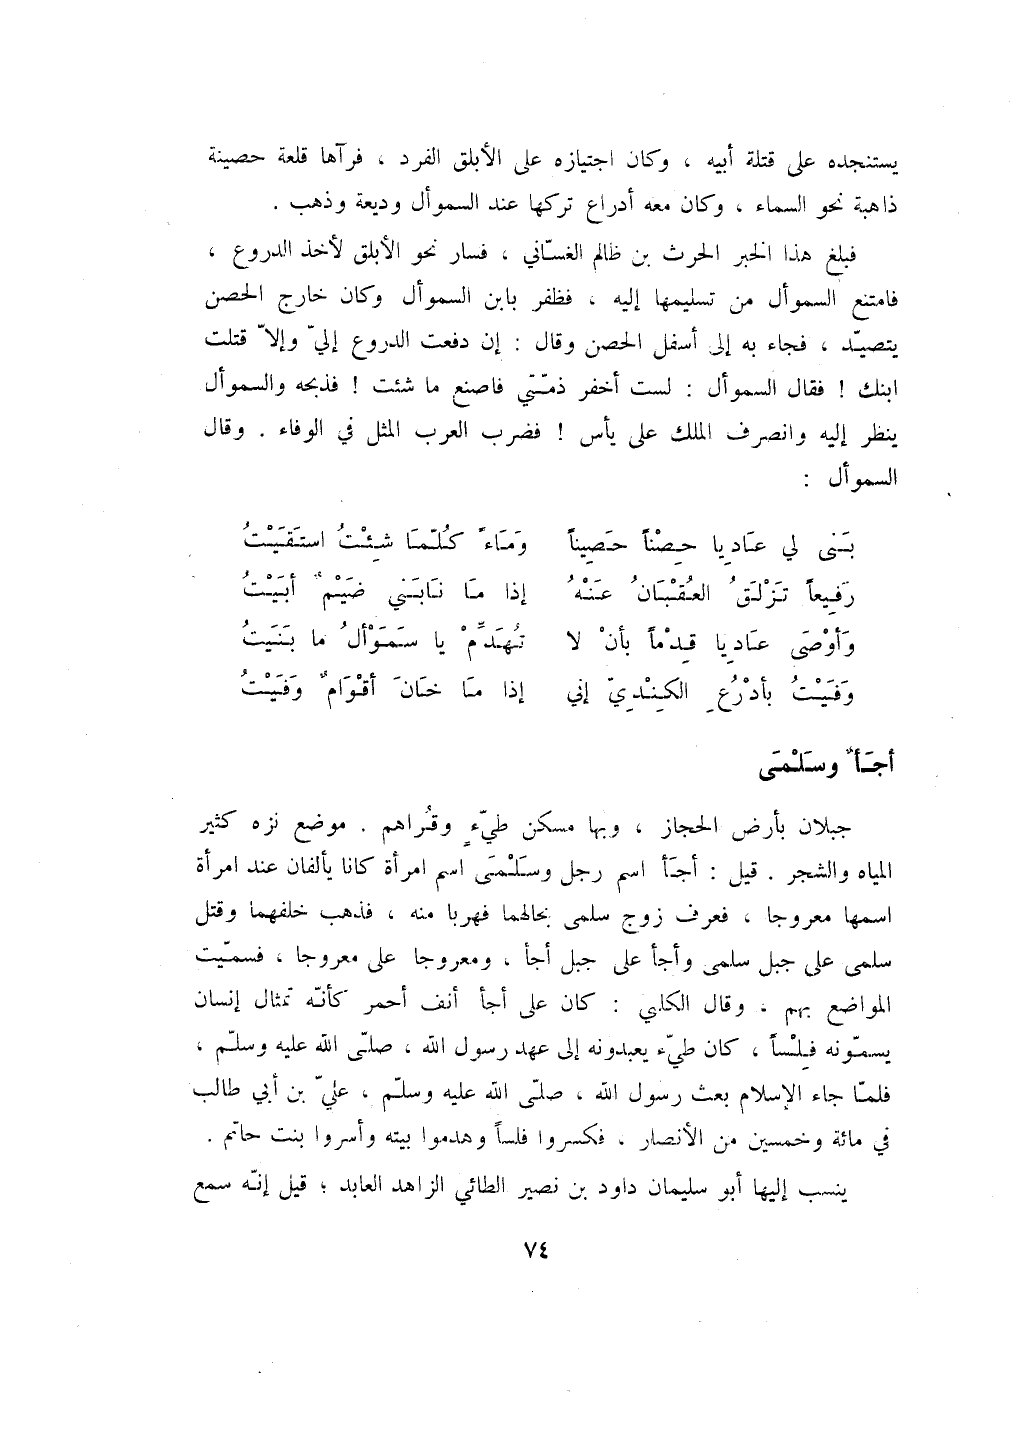 يستنجده على قتلة أبيه ، وكان اجتيازه على الأبلق الفرد ، فرآها قلعة حصينة
ذاهبة نحو السماء ، وكان معه أدراع تركها عند السموأل وديعة وذهب .
فبلغ هذا الخبر الحرث بن ظالم الغسّاني ، فسار نحو الأبلق لأخذ الدروع ،
فامتنع السموأل من تسليمها إليه ، فظفر بابن السموأل وكان خارج الحصن
يتصيّد ، فجاء به إلى أسفل الحصن وقال : إن دفعت الدروع إليّ وإلاّ قتلت
ابنك ! فقال السموأل : لست أخفر ذمّتي فاصنع ما شئت ! فذبحه والسموأل
ينظر إليه وانصرف الملك على يأس ! فضرب العرب المثل في الوفاء . وقال
السموأل :
بَنى لي عَاديِا حِصْناً حَصِيناً وَمَاءً كُلّمَا شِئْتُ استَقَيْتُ
رَفِيعاً تَزْلَقُ العُقْبَانُ عَنْهُ إذا مَا نَابَني ضَيْمٌ أبَيْتُ
وَأوْصَى عَاديِا قِدْماً بأنْ لا تُهَدِّمْ يا سَمَوْألُ ما بَنَيتُ
وَفَيْتُ بأدْرُعِ الكِنْدِيّ إني إذا مَا خَانَ أقْوَامٌ وَفَيْتُ
أجَأٌ وسَلْمَى
جبلان بأرض الحجاز ، وبها مسكن طيّءٍ وقُراهم . موضع نزه كثير
المياه والشجر . قيل : أجَأ اسم رجل وسَلْمَى اسم امرأة كانا يألفان عند امرأة
اسمها معروجا ، فعرف زوج سلمى بحالهما فهربا منه ، فذهب خلفهما وقتل
سلمى على جبل سلمى وأجأ على جبل أجأ ، ومعروجا على معروجا ، فسمّيت
المواضع بهم . وقال الكلبي : كان على أجأ أنف أحمر كأنّه تمثال إنسان
يسمّونه فِلْساً ، كان طيّء يعبدونه إلى عهد رسول الله ، صلّى الله عليه وسلّم ،
فلمّا جاء الإسلام بعث رسول الله ، صلّى الله عليه وسلّم ، عليّ بن أبي طالب
في مائة وخمسين من الأنصار ، فكسروا فلساً وهدموا بيته وأسروا بنت حاتم .
ينسب إليها أبو سليمان داود بن نصير الطائي الزاهد العابد ؛ قيل إنّه سمع
٧٤